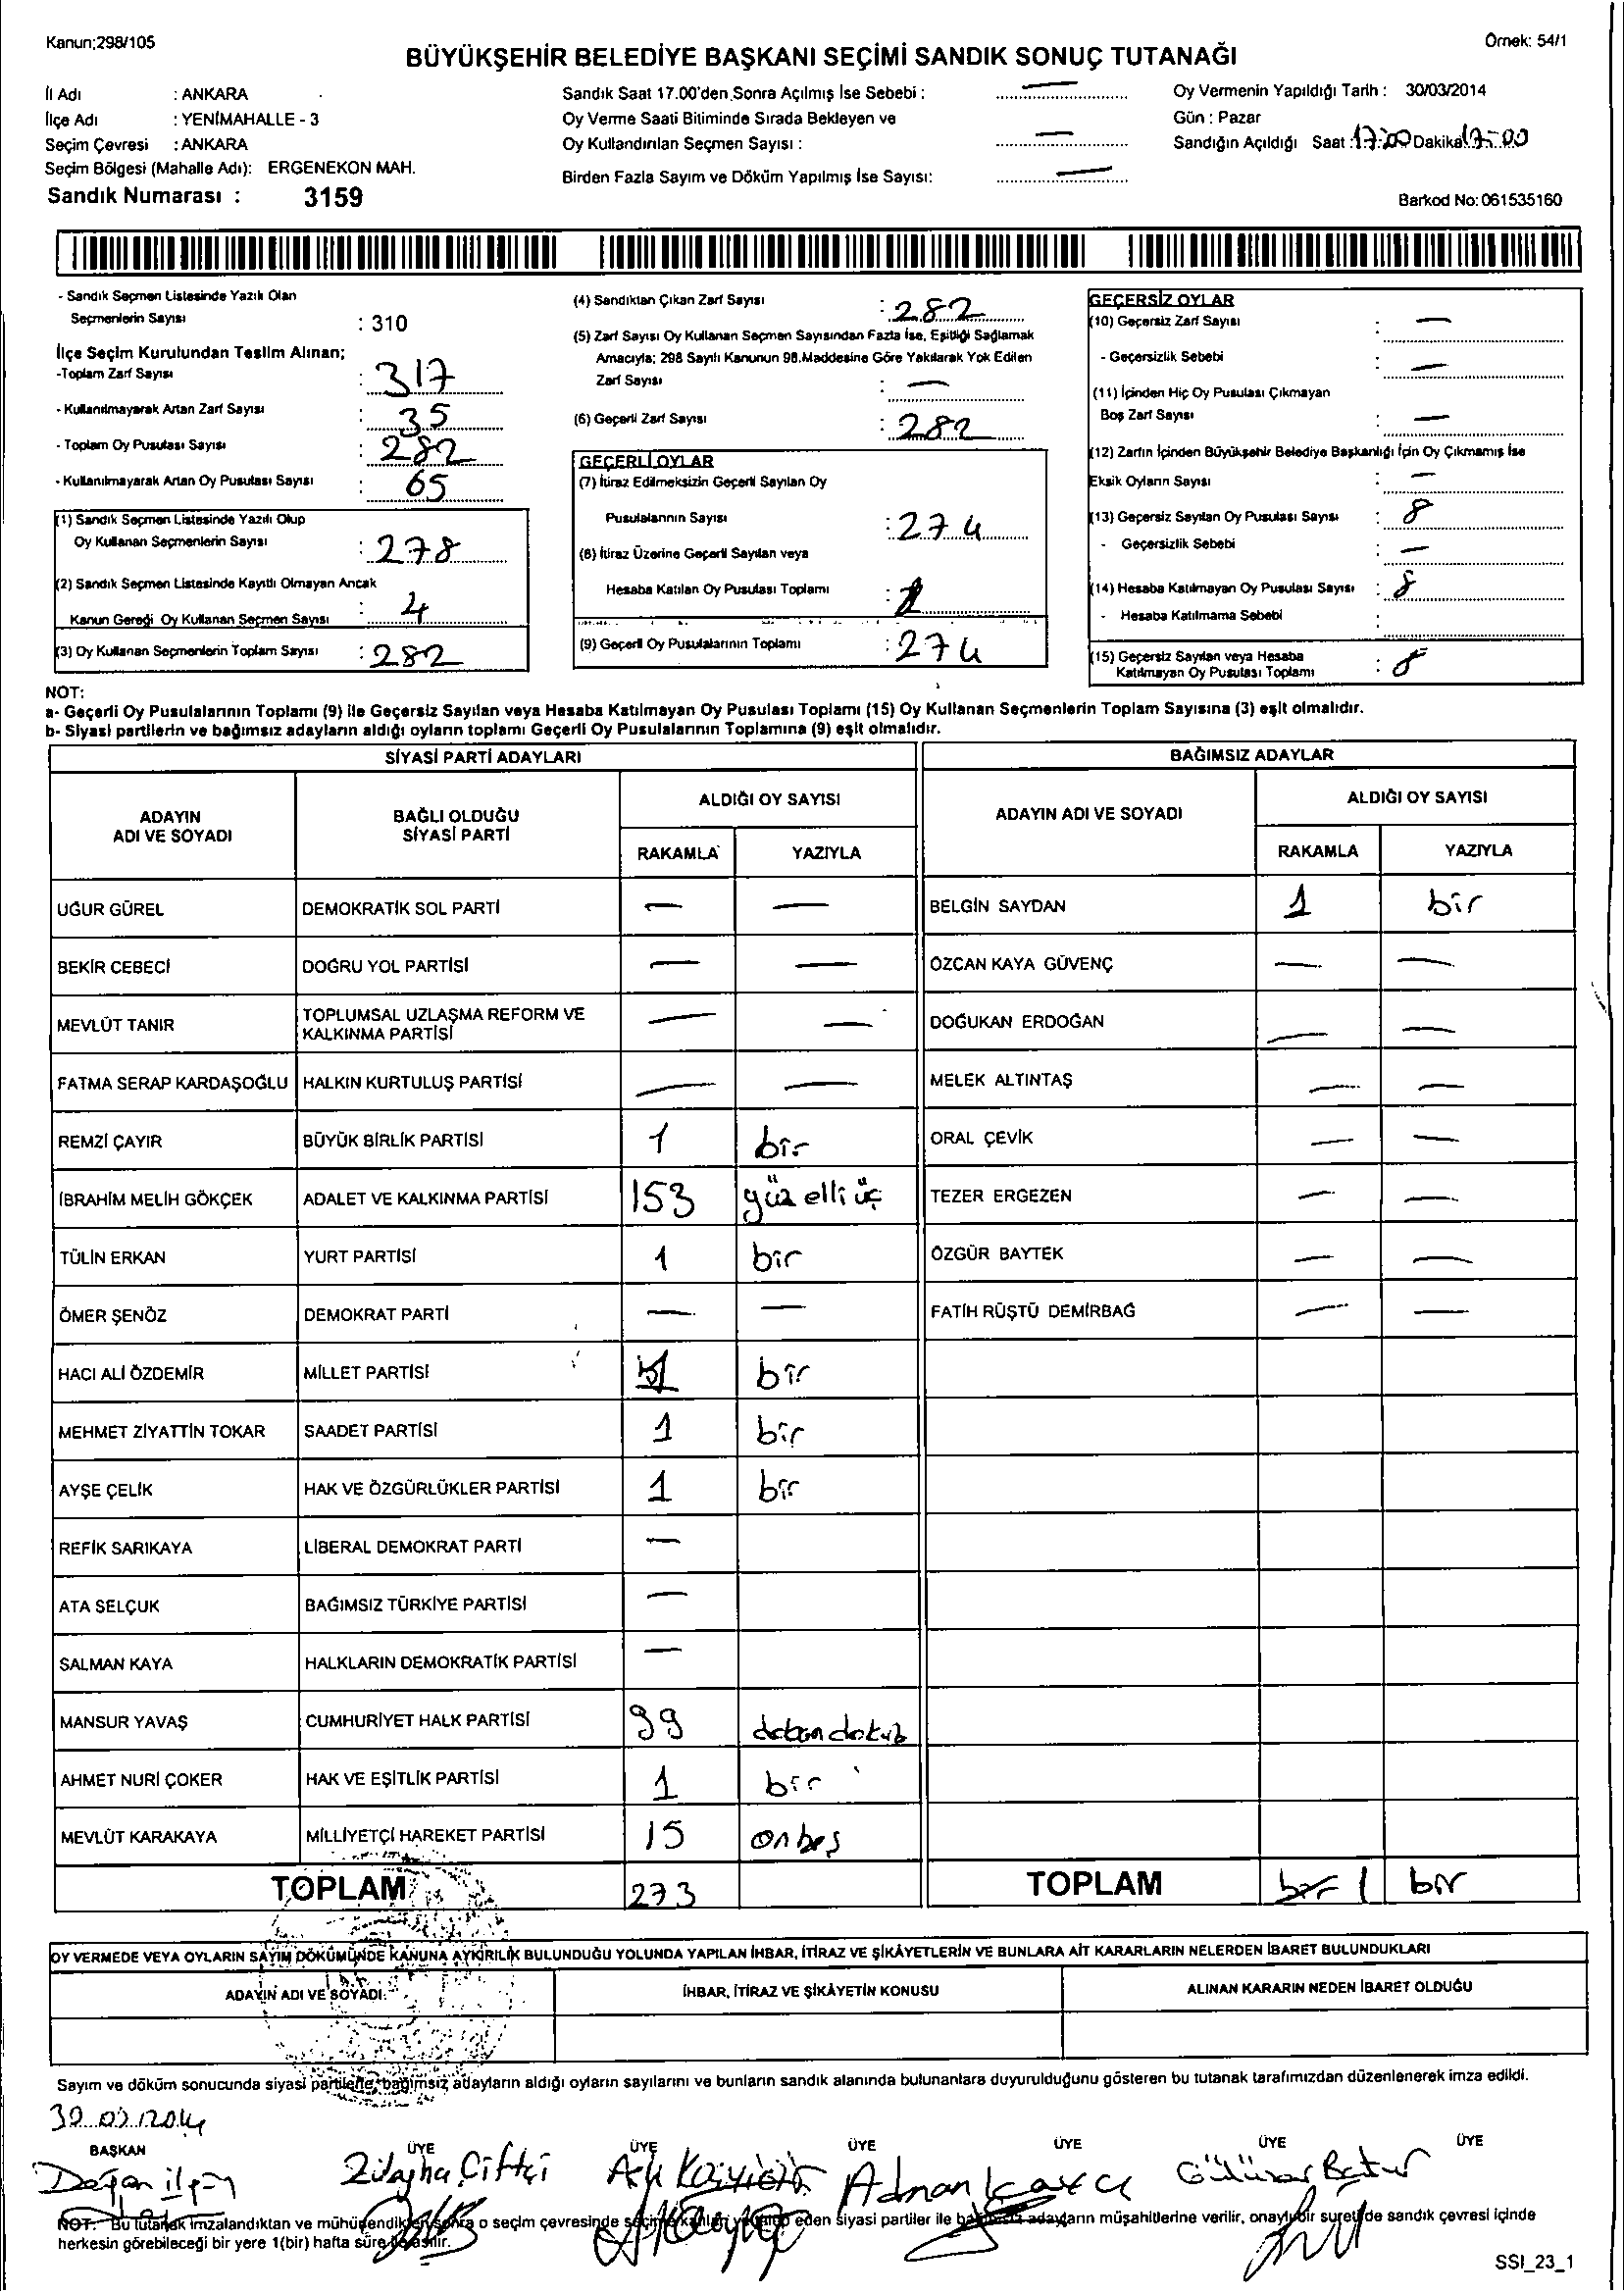 Kanun;298/105
Örnek: 54/1
BÜYÜKŞEHİR BELEDİYE BAŞKANI SEÇİMİ SANDIK SONUÇ TUTANAĞI
İl Adı : ANKARA
İlçe Adı : YENİMAHALLE - 3
Seçim Çevresi : ANKARA
Seçim Bölgesi (Mahalle Adı): ERGENEKON MAH.
Sandık Numarası : 3159
Sandık Saat 17.00'den Sonra Açılmış İse Sebebi : —
Oy Verme Saati Bitiminde Sırada Bekleyen ve
Oy Kullandırılan Seçmen Sayısı : —
Birden Fazla Sayım ve Döküm Yapılmış İse Sayısı: —
Oy Vermenin Yapıldığı Tarih : 30/03/2014
Gün : Pazar
Sandığın Açıldığı Saat : 17:00 Dakika 17:00
Barkod No: 061535160
- Sandık Seçmen Listesinde Yazılı Olan
Seçmenlerin Sayısı : 310
İlçe Seçim Kurulundan Teslim Alınan;
-Toplam Zarf Sayısı : 317
- Kullanılmayarak Artan Zarf Sayısı : 35
- Toplam Oy Pusulası Sayısı : 282
- Kullanılmayarak Artan Oy Pusulası Sayısı : 65
(1) Sandık Seçmen Listesinde Yazılı Olup
Oy Kullanan Seçmenlerin Sayısı : 278
(2) Sandık Seçmen Listesinde Kayıtlı Olmayan Ancak
Kanun Gereği Oy Kullanan Seçmen Sayısı : 4
(3) Oy Kullanan Seçmenlerin Toplam Sayısı : 282
(4) Sandıktan Çıkan Zarf Sayısı : 282
(5) Zarf Sayısı Oy Kullanan Seçmen Sayısından Fazla İse, Eşitliği Sağlamak
Amacıyla; 298 Sayılı Kanunun 98.Maddesine Göre Yakılarak Yok Edilen
Zarf Sayısı : —
(6) Geçerli Zarf Sayısı : 282
GEÇERLİ OYLAR
(7) İtiraz Edilmeksizin Geçerli Sayılan Oy
Pusulalarının Sayısı : 274
(8) İtiraz Üzerine Geçerli Sayılan veya
Hesaba Katılan Oy Pusulası Toplamı :
(9) Geçerli Oy Pusulalarının Toplamı : 274
GEÇERSİZ OYLAR
(10) Geçersiz Zarf Sayısı : —
- Geçersizlik Sebebi : —
(11) İçinden Hiç Oy Pusulası Çıkmayan
Boş Zarf Sayısı : —
(12) Zarfın İçinden Büyükşehir Belediye Başkanlığı İçin Oy Çıkmamış İse
Eksik Oyların Sayısı : —
(13) Geçersiz Sayılan Oy Pusulası Sayısı : 8
- Geçersizlik Sebebi : —
(14) Hesaba Katılmayan Oy Pusulası Sayısı : 8
- Hesaba Katılmama Sebebi :
(15) Geçersiz Sayılan veya Hesaba
Katılmayan Oy Pusulası Toplamı : 8
NOT:
a- Geçerli Oy Pusulalarının Toplamı (9) ile Geçersiz Sayılan veya Hesaba Katılmayan Oy Pusulası Toplamı (15) Oy Kullanan Seçmenlerin Toplam Sayısına (3) eşit olmalıdır.
b- Siyasi partilerin ve bağımsız adayların aldığı oyların toplamı Geçerli Oy Pusulalarının Toplamına (9) eşit olmalıdır.
SİYASİ PARTİ ADAYLARI
ADAYIN ADI VE SOYADI
BAĞLI OLDUĞU SİYASİ PARTİ
ALDIĞI OY SAYISI
RAKAMLA YAZIYLA
UĞUR GÜREL DEMOKRATİK SOL PARTİ — —
BEKİR CEBECİ DOĞRU YOL PARTİSİ — —
MEVLÜT TANIR TOPLUMSAL UZLAŞMA REFORM VE KALKINMA PARTİSİ — —
FATMA SERAP KARDAŞOĞLU HALKIN KURTULUŞ PARTİSİ — —
REMZİ ÇAYIR BÜYÜK BİRLİK PARTİSİ 1 bir
İBRAHİM MELİH GÖKÇEK ADALET VE KALKINMA PARTİSİ 153 yüz elli üç
TÜLİN ERKAN YURT PARTİSİ 1 bir
ÖMER ŞENÖZ DEMOKRAT PARTİ — —
HACI ALİ ÖZDEMİR MİLLET PARTİSİ 1 bir
MEHMET ZİYATTİN TOKAR SAADET PARTİSİ 1 bir
AYŞE ÇELİK HAK VE ÖZGÜRLÜKLER PARTİSİ 1 bir
REFİK SARIKAYA LİBERAL DEMOKRAT PARTİ —
ATA SELÇUK BAĞIMSIZ TÜRKİYE PARTİSİ —
SALMAN KAYA HALKLARIN DEMOKRATİK PARTİSİ —
MANSUR YAVAŞ CUMHURİYET HALK PARTİSİ 99 doksan dokuz
AHMET NURİ ÇOKER HAK VE EŞİTLİK PARTİSİ 1 bir
MEVLÜT KARAKAYA MİLLİYETÇİ HAREKET PARTİSİ 15 onbeş
TOPLAM 273
BAĞIMSIZ ADAYLAR
ADAYIN ADI VE SOYADI
ALDIĞI OY SAYISI
RAKAMLA YAZIYLA
BELGİN SAYDAN 1 bir
ÖZCAN KAYA GÜVENÇ — —
DOĞUKAN ERDOĞAN — —
MELEK ALTINTAŞ — —
ORAL ÇEVİK — —
TEZER ERGEZEN — —
ÖZGÜR BAYTEK — —
FATİH RÜŞTÜ DEMİRBAĞ — —
TOPLAM bir 1 bir
OY VERMEDE VEYA OYLARIN SAYIM DÖKÜMÜNDE KANUNA AYKIRILIK BULUNDUĞU YOLUNDA YAPILAN İHBAR, İTİRAZ VE ŞİKÂYETLERİN VE BUNLARA AİT KARARLARIN NELERDEN İBARET BULUNDUKLARI
ADAYIN ADI VE SOYADI
İHBAR, İTİRAZ VE ŞİKÂYETİN KONUSU
ALINAN KARARIN NEDEN İBARET OLDUĞU
Sayım ve döküm sonucunda siyasi partilerle, bağımsız adayların aldığı oyların sayılarını ve bunların sandık alanında bulunanlara duyurulduğunu gösteren bu tutanak tarafımızdan düzenlenerek imza edildi.
30.03.2014
BAŞKAN ÜYE ÜYE ÜYE ÜYE ÜYE ÜYE
Doğan ilgın Züleyha Çiftçi Adnan
NOT: Bu tutanak imzalandıktan ve mühürlendikten sonra o seçim çevresinde eden siyasi partiler ile bağımsız adayların müşahitlerine verilir, onaylı bir sureti de sandık çevresi içinde
herkesin görebileceği bir yere 1(bir) hafta süre ile asılır.
SSI_23_1